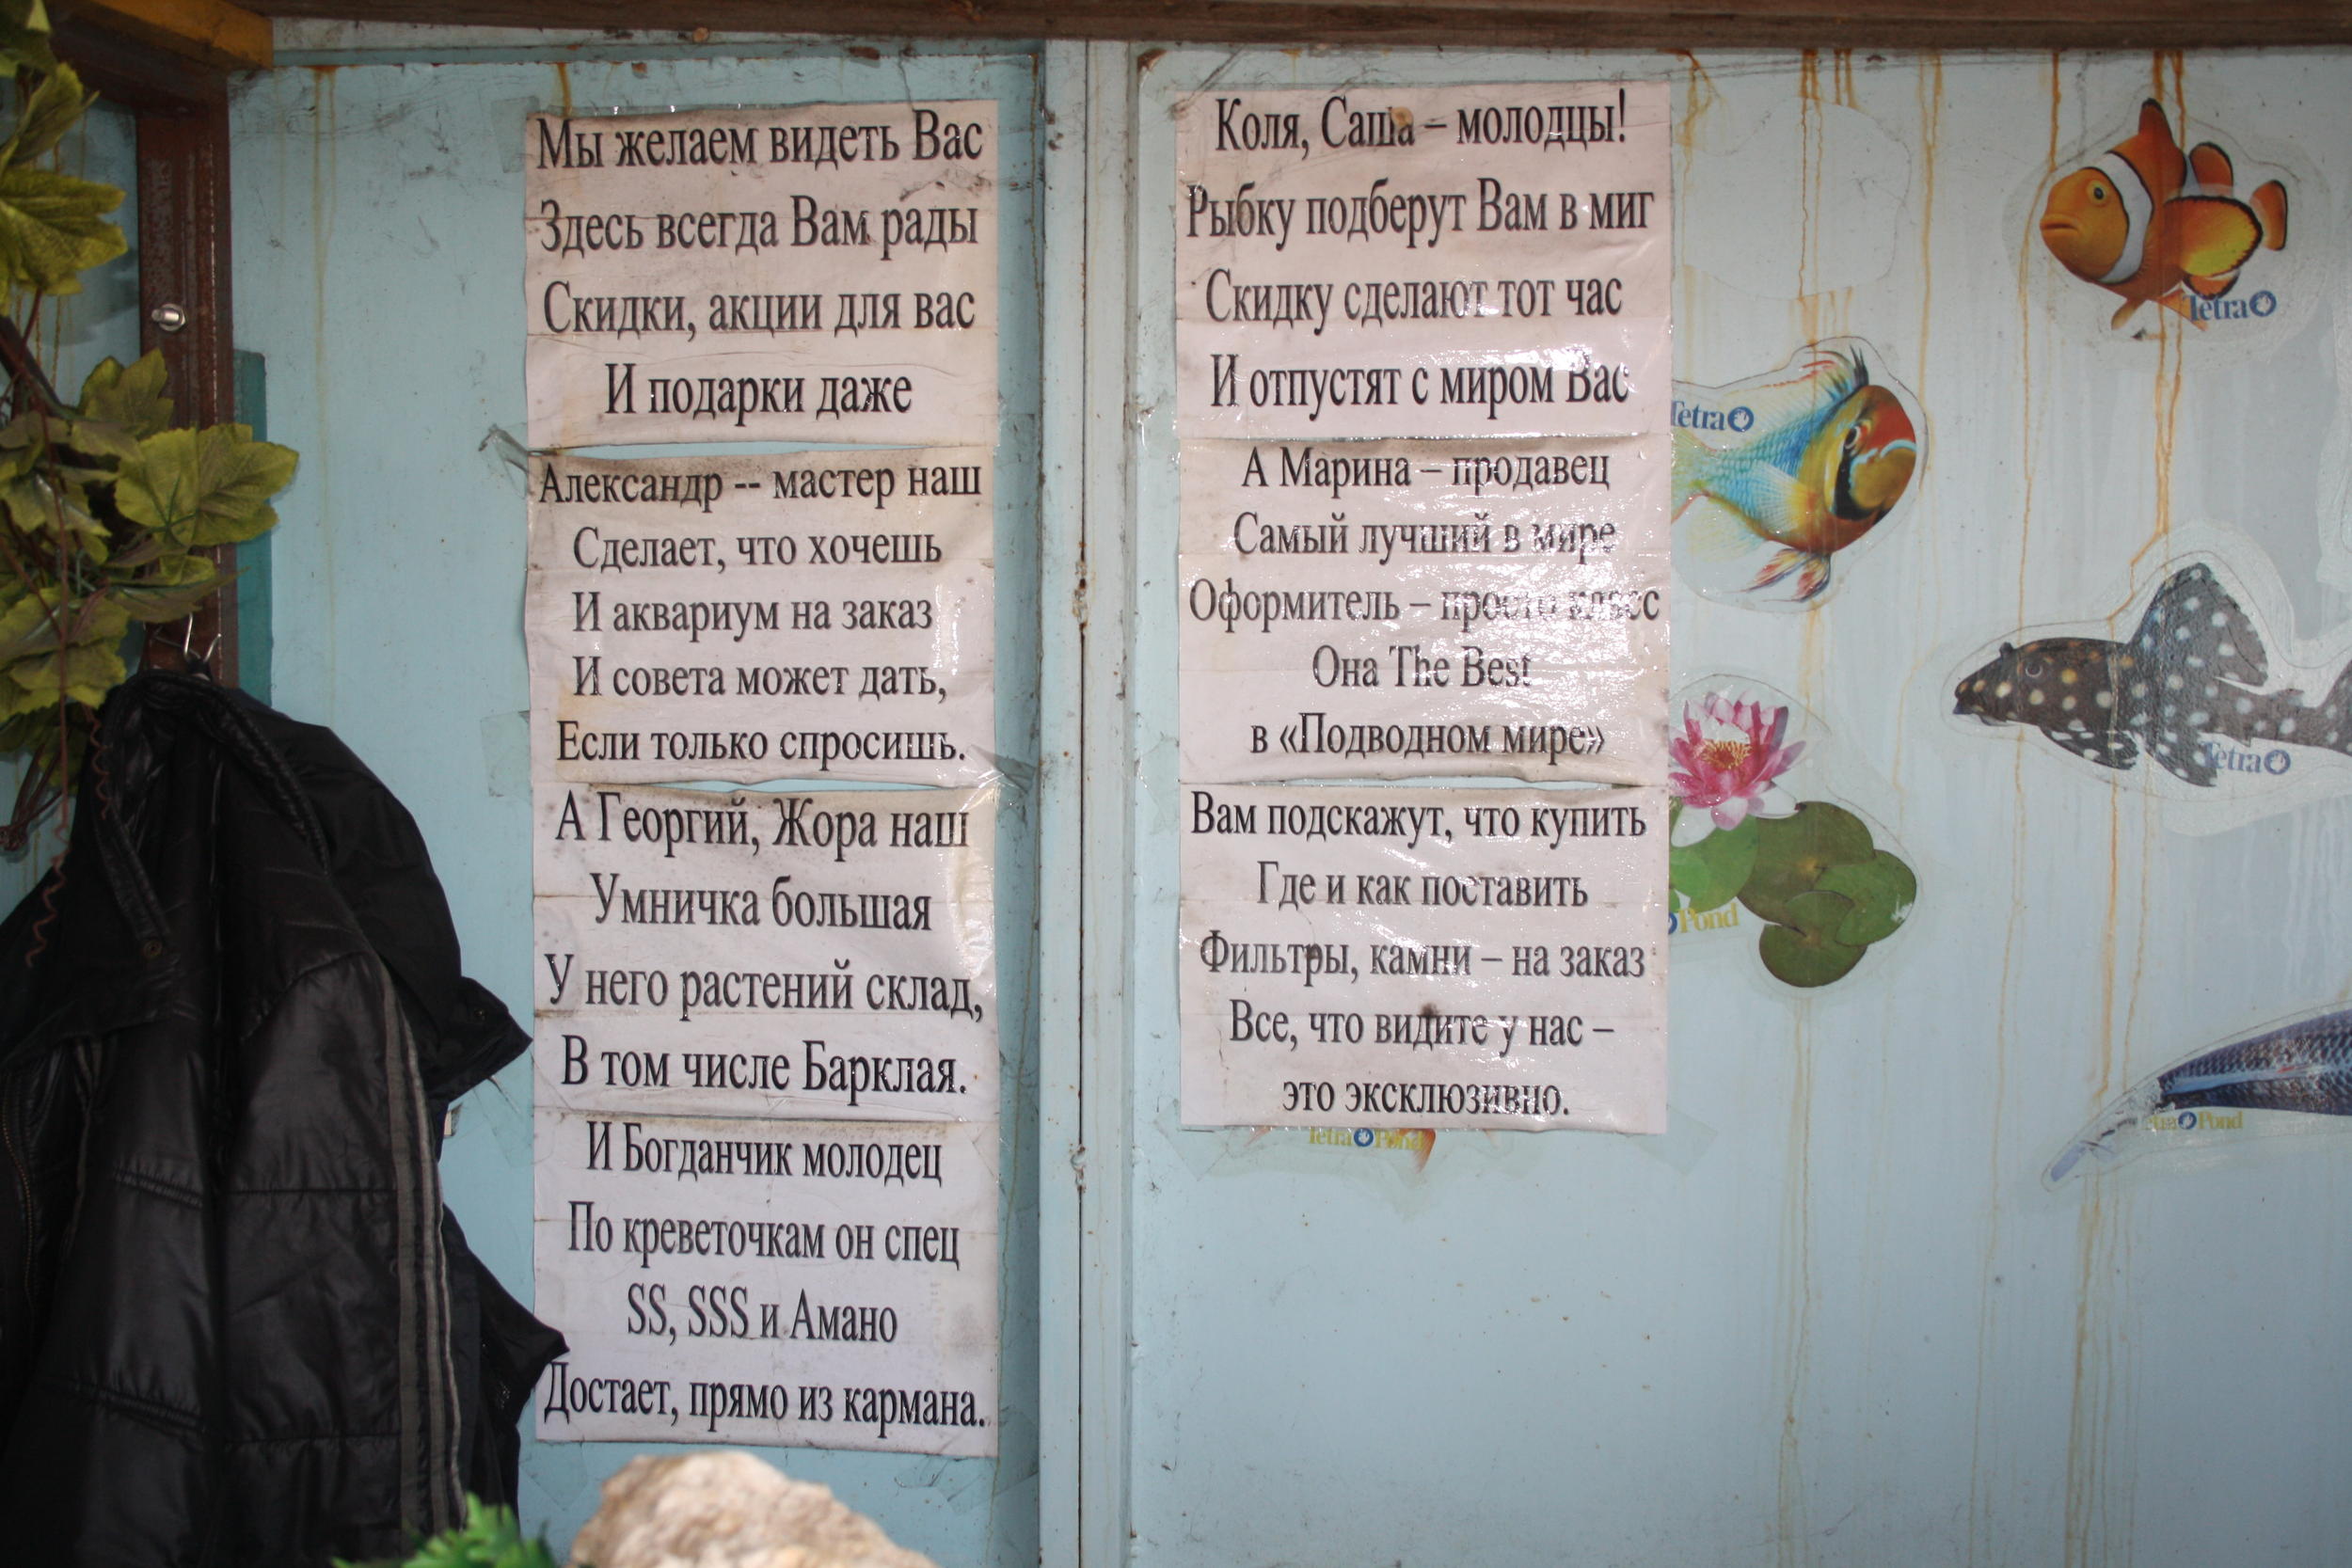 Мы желаем видеть Вас
Здесь всегда Вам рады
Скидки, акции для вас
И подарки даже
Александр -- мастер наш
Сделает, что хочешь
И аквариум на заказ
И совета может дать,
Если только спросишь.
А Георгий, Жора наш
Умничка большая
У него растений склад,
В том числе Барклая.
И Богданчик молодец
По креветочкам он спец
SS, SSS и Амано
Достает, прямо из кармана.
Коля, Саша – молодцы!
Рыбку подберут Вам в миг
Скидку сделают тот час
И отпустят с миром Вас
А Марина – продавец
Самый лучший в мире
Оформитель – просто класс
Она The Best
в «Подводном мире»
Вам подскажут, что купить
Где и как поставить
Фильтры, камни – на заказ
Все, что видите у нас –
это эксклюзивно.
Tetra Pond
Tetra
Tetra
Pond
Tetra
Tetra Pond